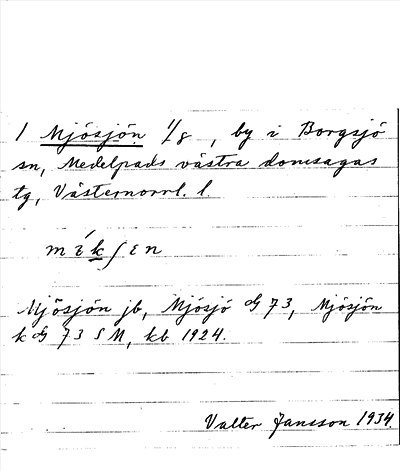 1 Mjösjön 1/8, by i Borgsjö
sn, Medelpads västra domsagas
tg, Västernorrl. l.
Mjösjön jb, Mjösjö 73, Mjösjön
k 73 SM, kb 1924.
Valter Jansson 1934.